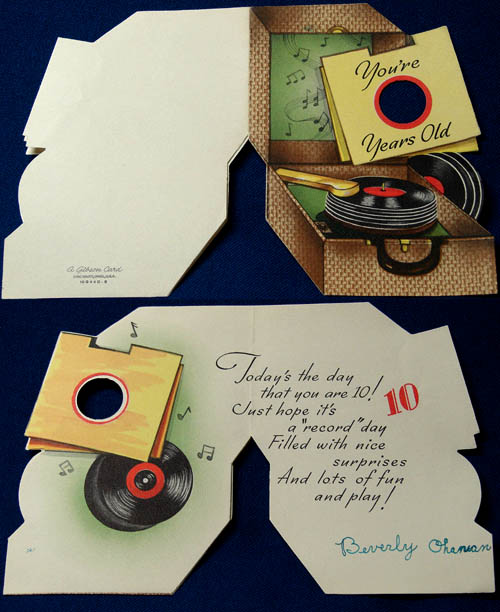 You're
Years Old
A Gibson Card
CINCINNATI, OHIO, U.S.A.
Today's the day
that you are 10!
10
Just hope it's
a "record" day
Filled with nice
surprises
And lots of fun
and play!
Beverly Ohanian